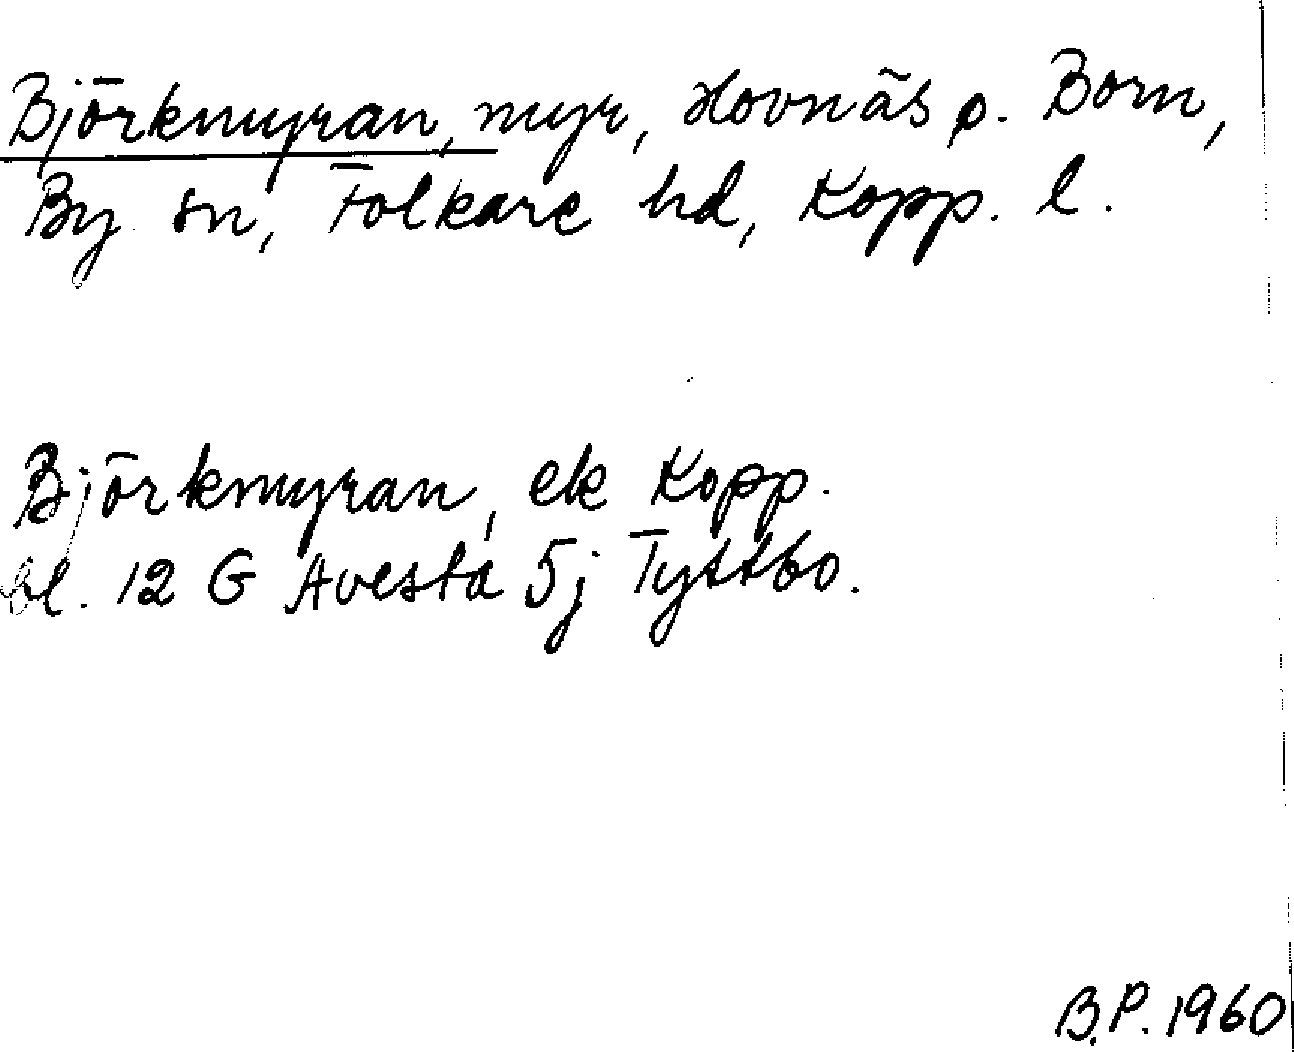 Björkmyran, myr, Hovnäs o. Born,
By sn, Folkare hd, Kopp. l.
Björkmyran, ek Kopp.
bl. 12 G Avesta 5j Tyttbo.
B.P. 1960